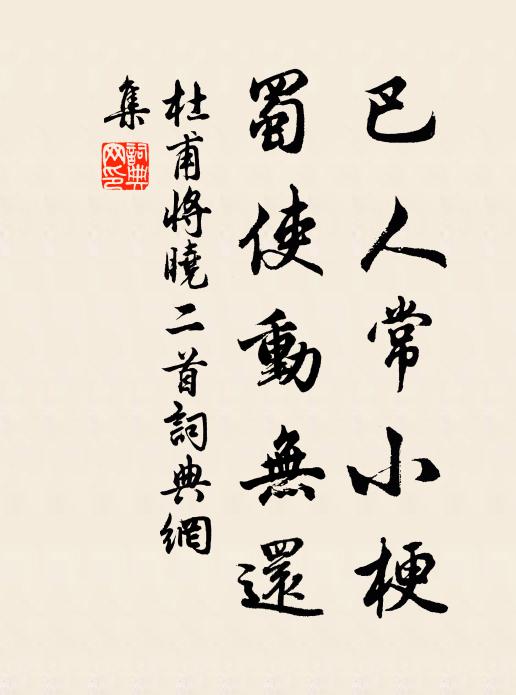 巴人常小梗
蜀使動無還
杜甫將曉二首詞典網
集
詞典
網印